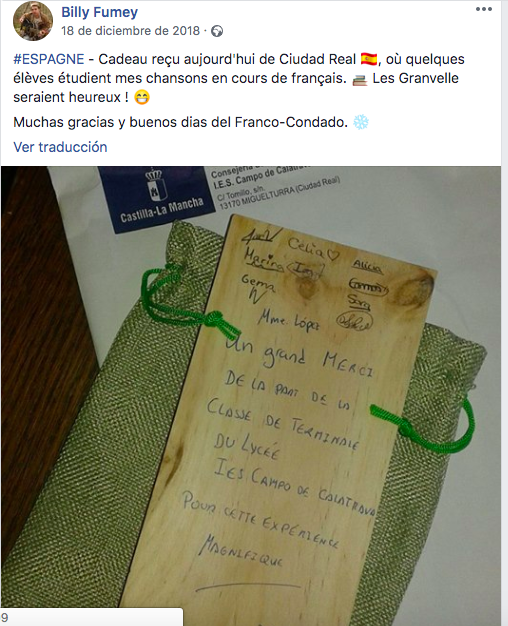 Billy Fumey
18 de diciembre de 2018 ·
#ESPAGNE - Cadeau reçu aujourd'hui de Ciudad Real 🇪🇸, où quelques
élèves étudient mes chansons en cours de français. 📚 Les Granvelle
seraient heureux ! 😁
Muchas gracias y buenos dias del Franco-Condado. ❄️
Ver traducción
Castilla-La Mancha
Consejería
I.E.S. Campo de Calatrava
C/ Tomillo, s/n.
13170 MIGUELTURRA (Ciudad Real)
Celia♡
Marina
Alicia
Gema
Carmen
Sara
Mme López
Un grand MERCI
DE LA PART DE LA
CLASSE DE TERMINALE
DU LYCÉE
IES CAMPO DE CALATRAVA
POUR CETTE EXPÉRIENCE
MAGNIFIQUE
9